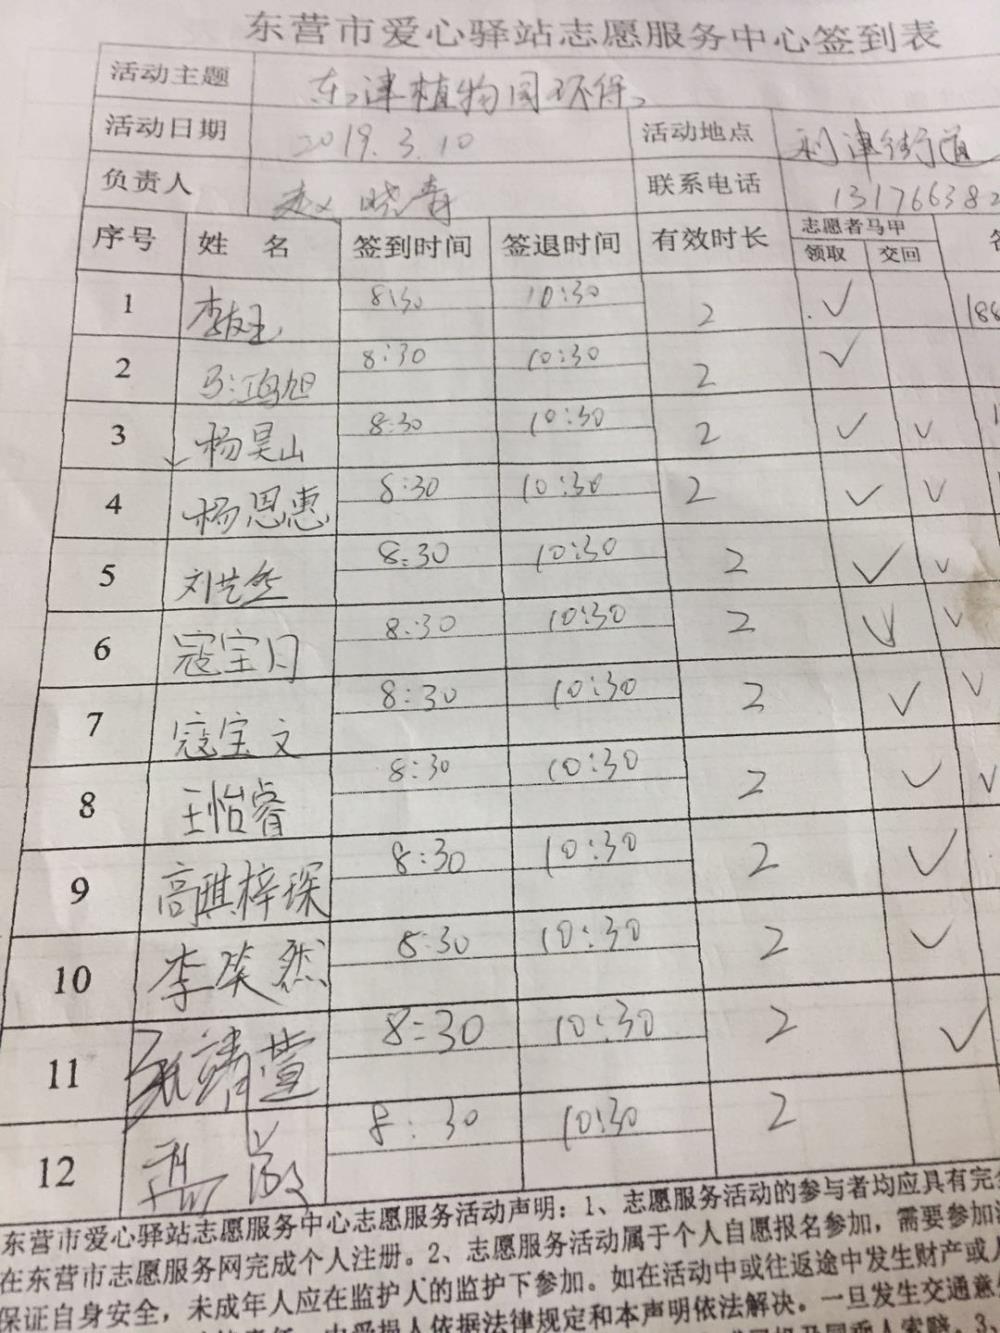 东营市爱心驿站志愿服务中心签到表
活动主题 东津植物园环保
活动日期 2019.3.10 活动地点 利津街道
负责人 赵晓青 联系电话 131766382
序号 姓 名 签到时间 签退时间 有效时长 志愿者马甲
领取 交回
1 8:30 10:30 2 ✓ 188
2 8:30 10:30 2 ✓
3 杨昊山 8:30 10:30 2 ✓ ✓
4 杨恩惠 8:30 10:30 2 ✓ ✓
5 刘艺然 8:30 10:30 2 ✓ ✓
6 寇宝月 8:30 10:30 2 ✓ ✓
7 寇宝文 8:30 10:30 2 ✓ ✓
8 王怡睿 8:30 10:30 2 ✓ ✓
9 高琪梓琛 8:30 10:30 2 ✓
10 李奕然 8:30 10:30 2 ✓
11 张靖萱 8:30 10:30 2 ✓
12 8:30 10:30 2
东营市爱心驿站志愿服务中心志愿服务活动声明：1、志愿服务活动的参与者均应具有完全
在东营市志愿服务网完成个人注册。2、志愿服务活动属于个人自愿报名参加，需要参加
保证自身安全，未成年人应在监护人的监护下参加。如在活动中或往返途中发生财产或人
由受损人依据法律规定和本声明依法解决。一旦发生交通意